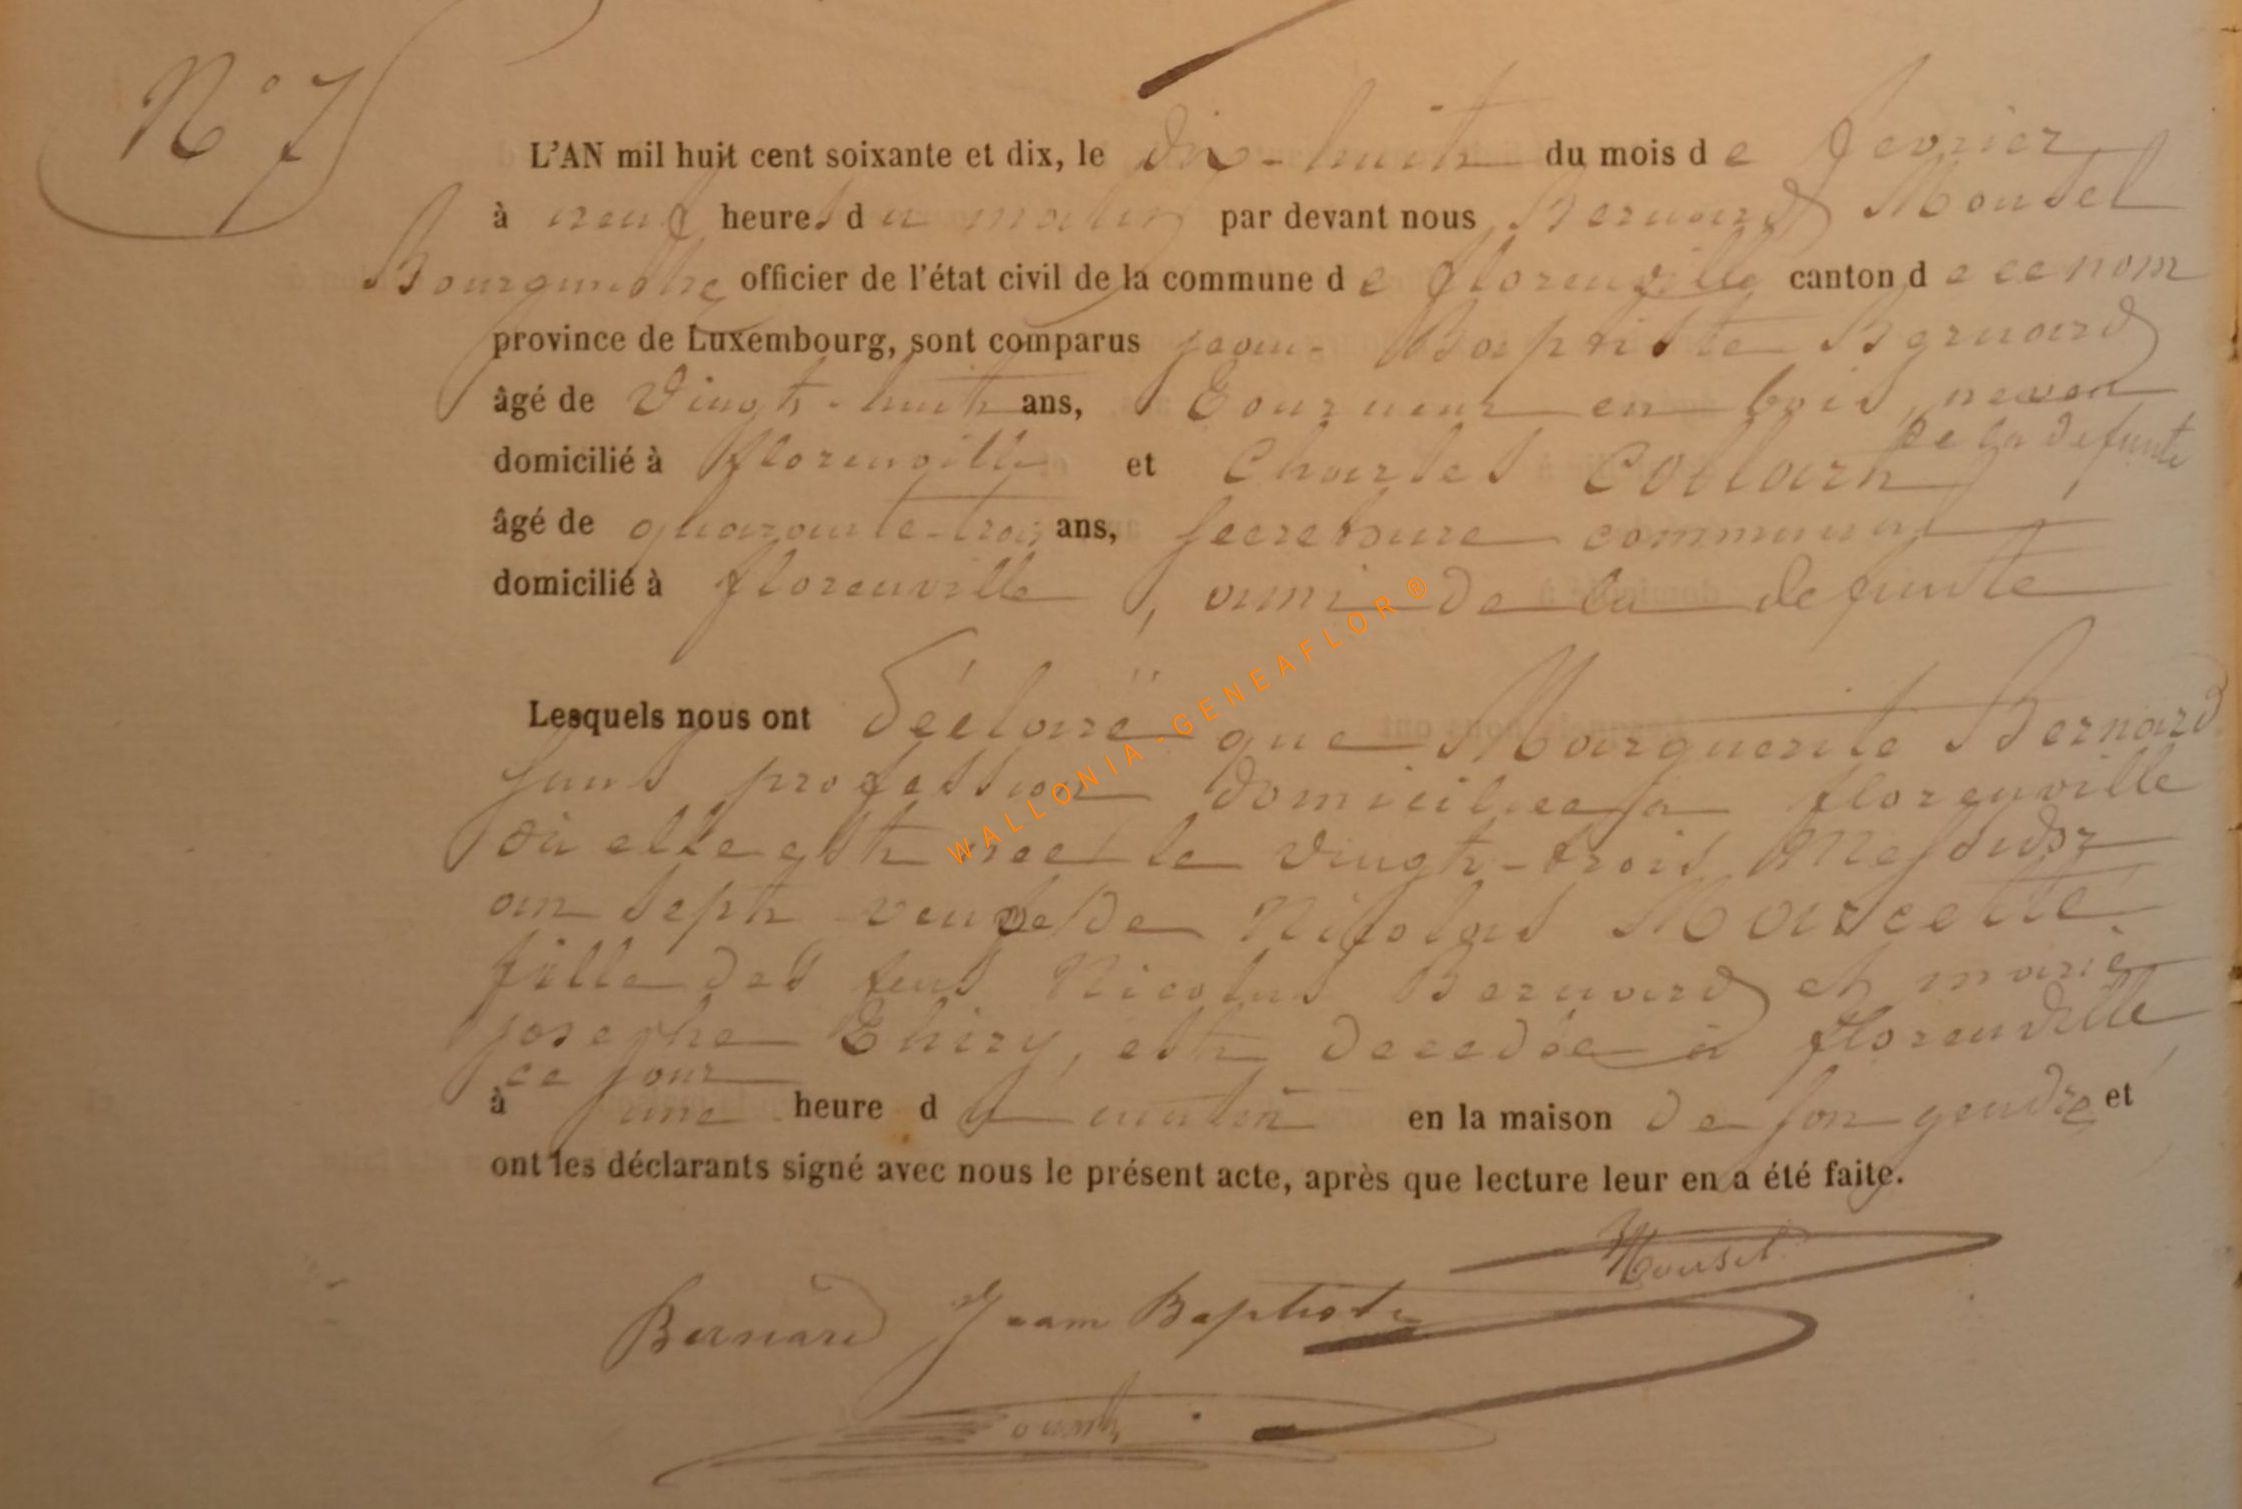 N° 7
L'AN mil huit cent soixante et dix, le dix-huit du mois de fevrier
à neuf heures du matin par devant nous Bernard Mousel
Bourgmestre officier de l'état civil de la commune de florenville canton de ce nom
province de Luxembourg, sont comparus jean-Baptiste Bernard
âgé de vingt-huit ans, Tourneur en bois, neveu
de la defunte
domicilié à florenville et Charles Collart
âgé de quarante-trois ans, secretaire communal
domicilié à florenville, ami de la defunte
Lesquels nous ont déclaré que Marguerite Bernard
sans profession domiciliee a florenville
où elle est nee le vingt-trois Messidor
an sept veuve de Nicolas
fille des feus Nicolas Bernard et marie
josephe Thiry, est decedée a florenville
ce jour
à une heure du matin en la maison de son gendre et
ont les déclarants signé avec nous le présent acte, après que lecture leur en a été faite.
Mousel
Bernard Jean Baptiste
WALLONIA-GENEAFLOR®